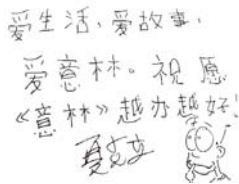 爱生活，爱故事，
爱意林。祝愿
《意林》越办越好！